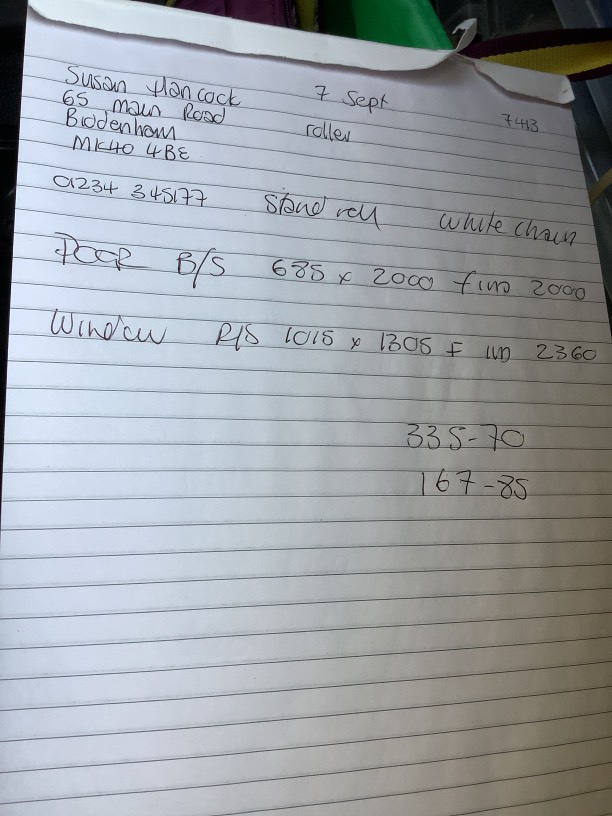 Susan Hancock 7 Sept 7413
65 main Road roller
Biddenham
MK40 4BE
01234 345177 stand roll white chain
DOOR B/S 685 x 2000 f 2000
Window R/S 1015 x 1305 F 2360
335-70
167-85